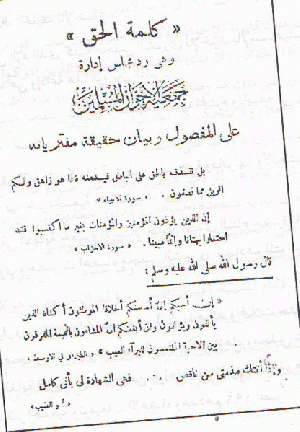 « كلمة الحق »
وهى رد مجلس إدارة
جمعية الإخوان المسلمين
على المفصول وبيان حقيقة مفترياته
بل نقذف بالحق على الباطل فيدمغه فإذا هو زاهق ولكم
الويل مما تصفون . « سورة الأنبياء »
إن الذين يؤذون المؤمنين والمؤمنات بغير ما اكتسبوا فقد
احتملوا بهتانا وإثما مبينا . « سورة الأحزاب »
قال رسول الله صلى الله عليه وسلم :
« إن أحبكم إلى أحاسنكم أخلاقا الموطئون أكنافا الذين
يألفون ويؤلفون وإن أبغضكم إلى المشاءون بالنميمة المفرقون
بين الأحبة الملتمسون للبرآء العيب »
وإذا أتتك مذمتى من ناقص فهى الشهادة لى بأنى كامل